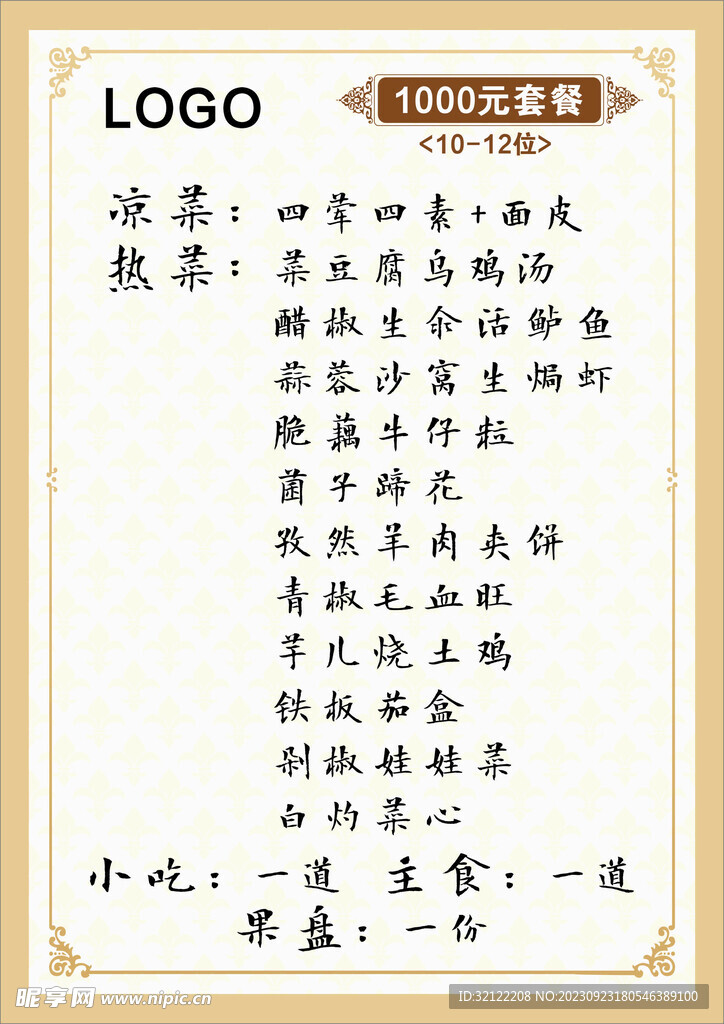 LOGO
1000元套餐
<10-12位>
凉菜：四荤四素+面皮
热菜：菜豆腐乌鸡汤
醋椒生汆活鲈鱼
蒜蓉沙窝生焗虾
脆藕牛仔粒
菌子蹄花
孜然羊肉夹饼
青椒毛血旺
芋儿烧土鸡
铁板茄盒
剁椒娃娃菜
白灼菜心
小吃：一道 主食：一道
果盘：一份
昵享网 www.nipic.cn
ID:32122208 NO:20230923180546389100